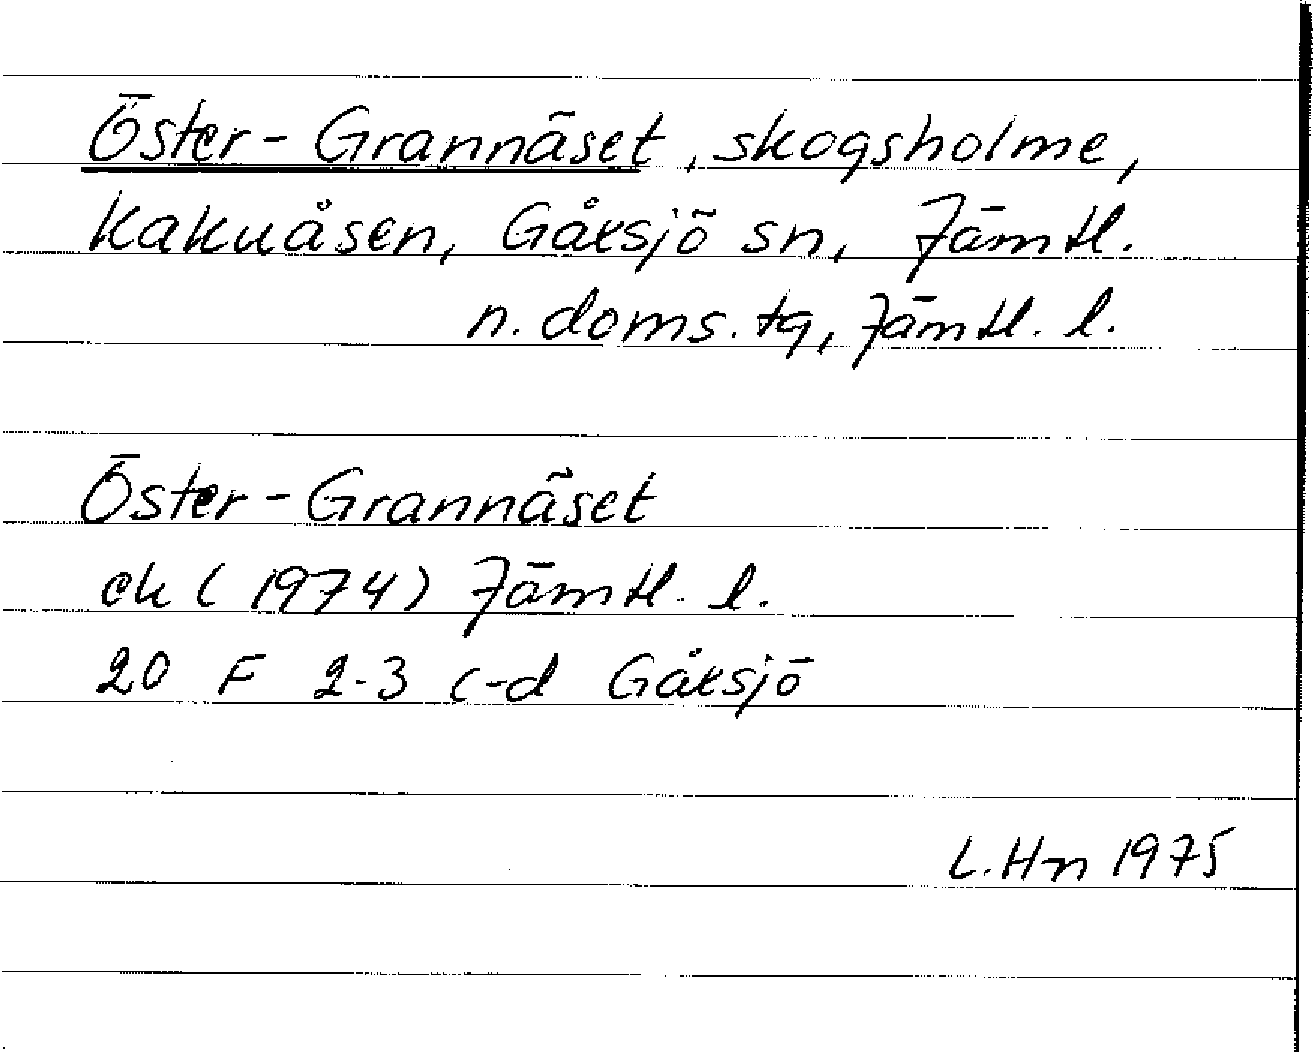 Öster-Grannäset, skogsholme,
Kakuåsen, Gåxsjö sn, Jämtl.
n. doms. tg, Jämtl. l.
Öster-Grannäset
ek (1974) Jämtl. l.
20 F 2-3 c-d Gåxsjö
L. Hn 1975